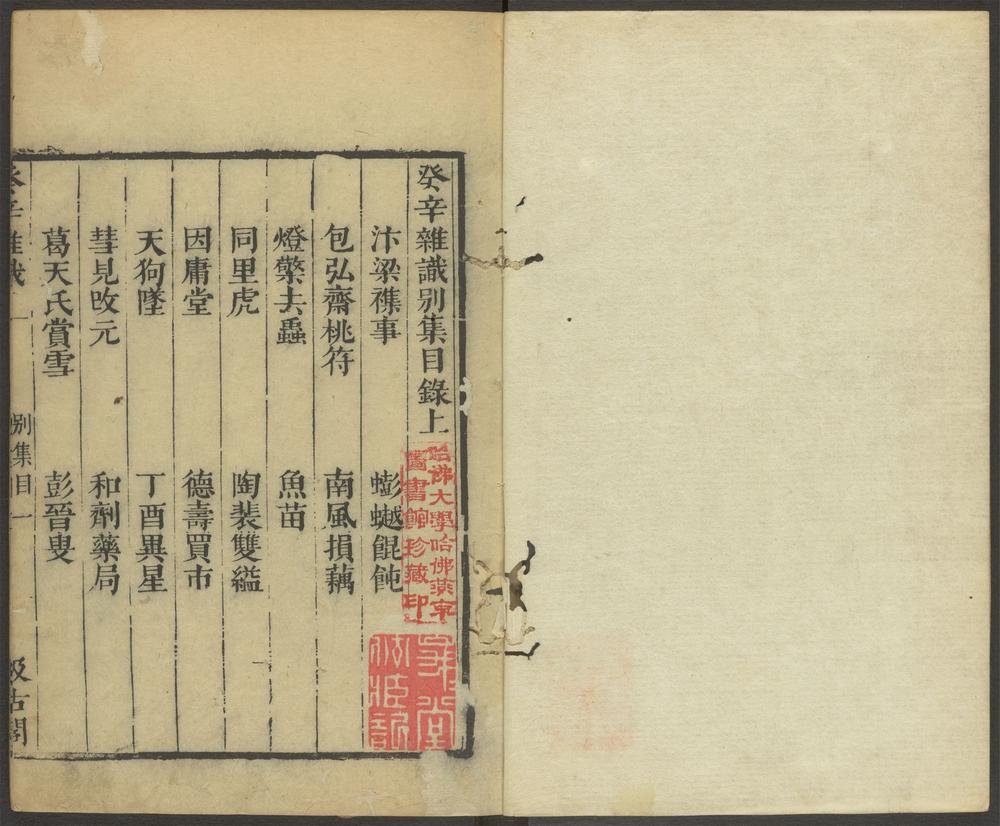 癸辛雜識別集目錄上
汴梁襍事　蟛𧑅餛飩
包弘齋桃符　南風損藕
燈檠去蟲　魚苗
同里虎　陶裴雙縊
因庸堂　德壽買市
天狗墜　丁酉異星
彗見改元　和劑藥局
葛天氏賞雪　彭晉叟
癸辛雜識　別集目一　汲古閣
哈佛大學哈佛燕京
圖書館珍藏印